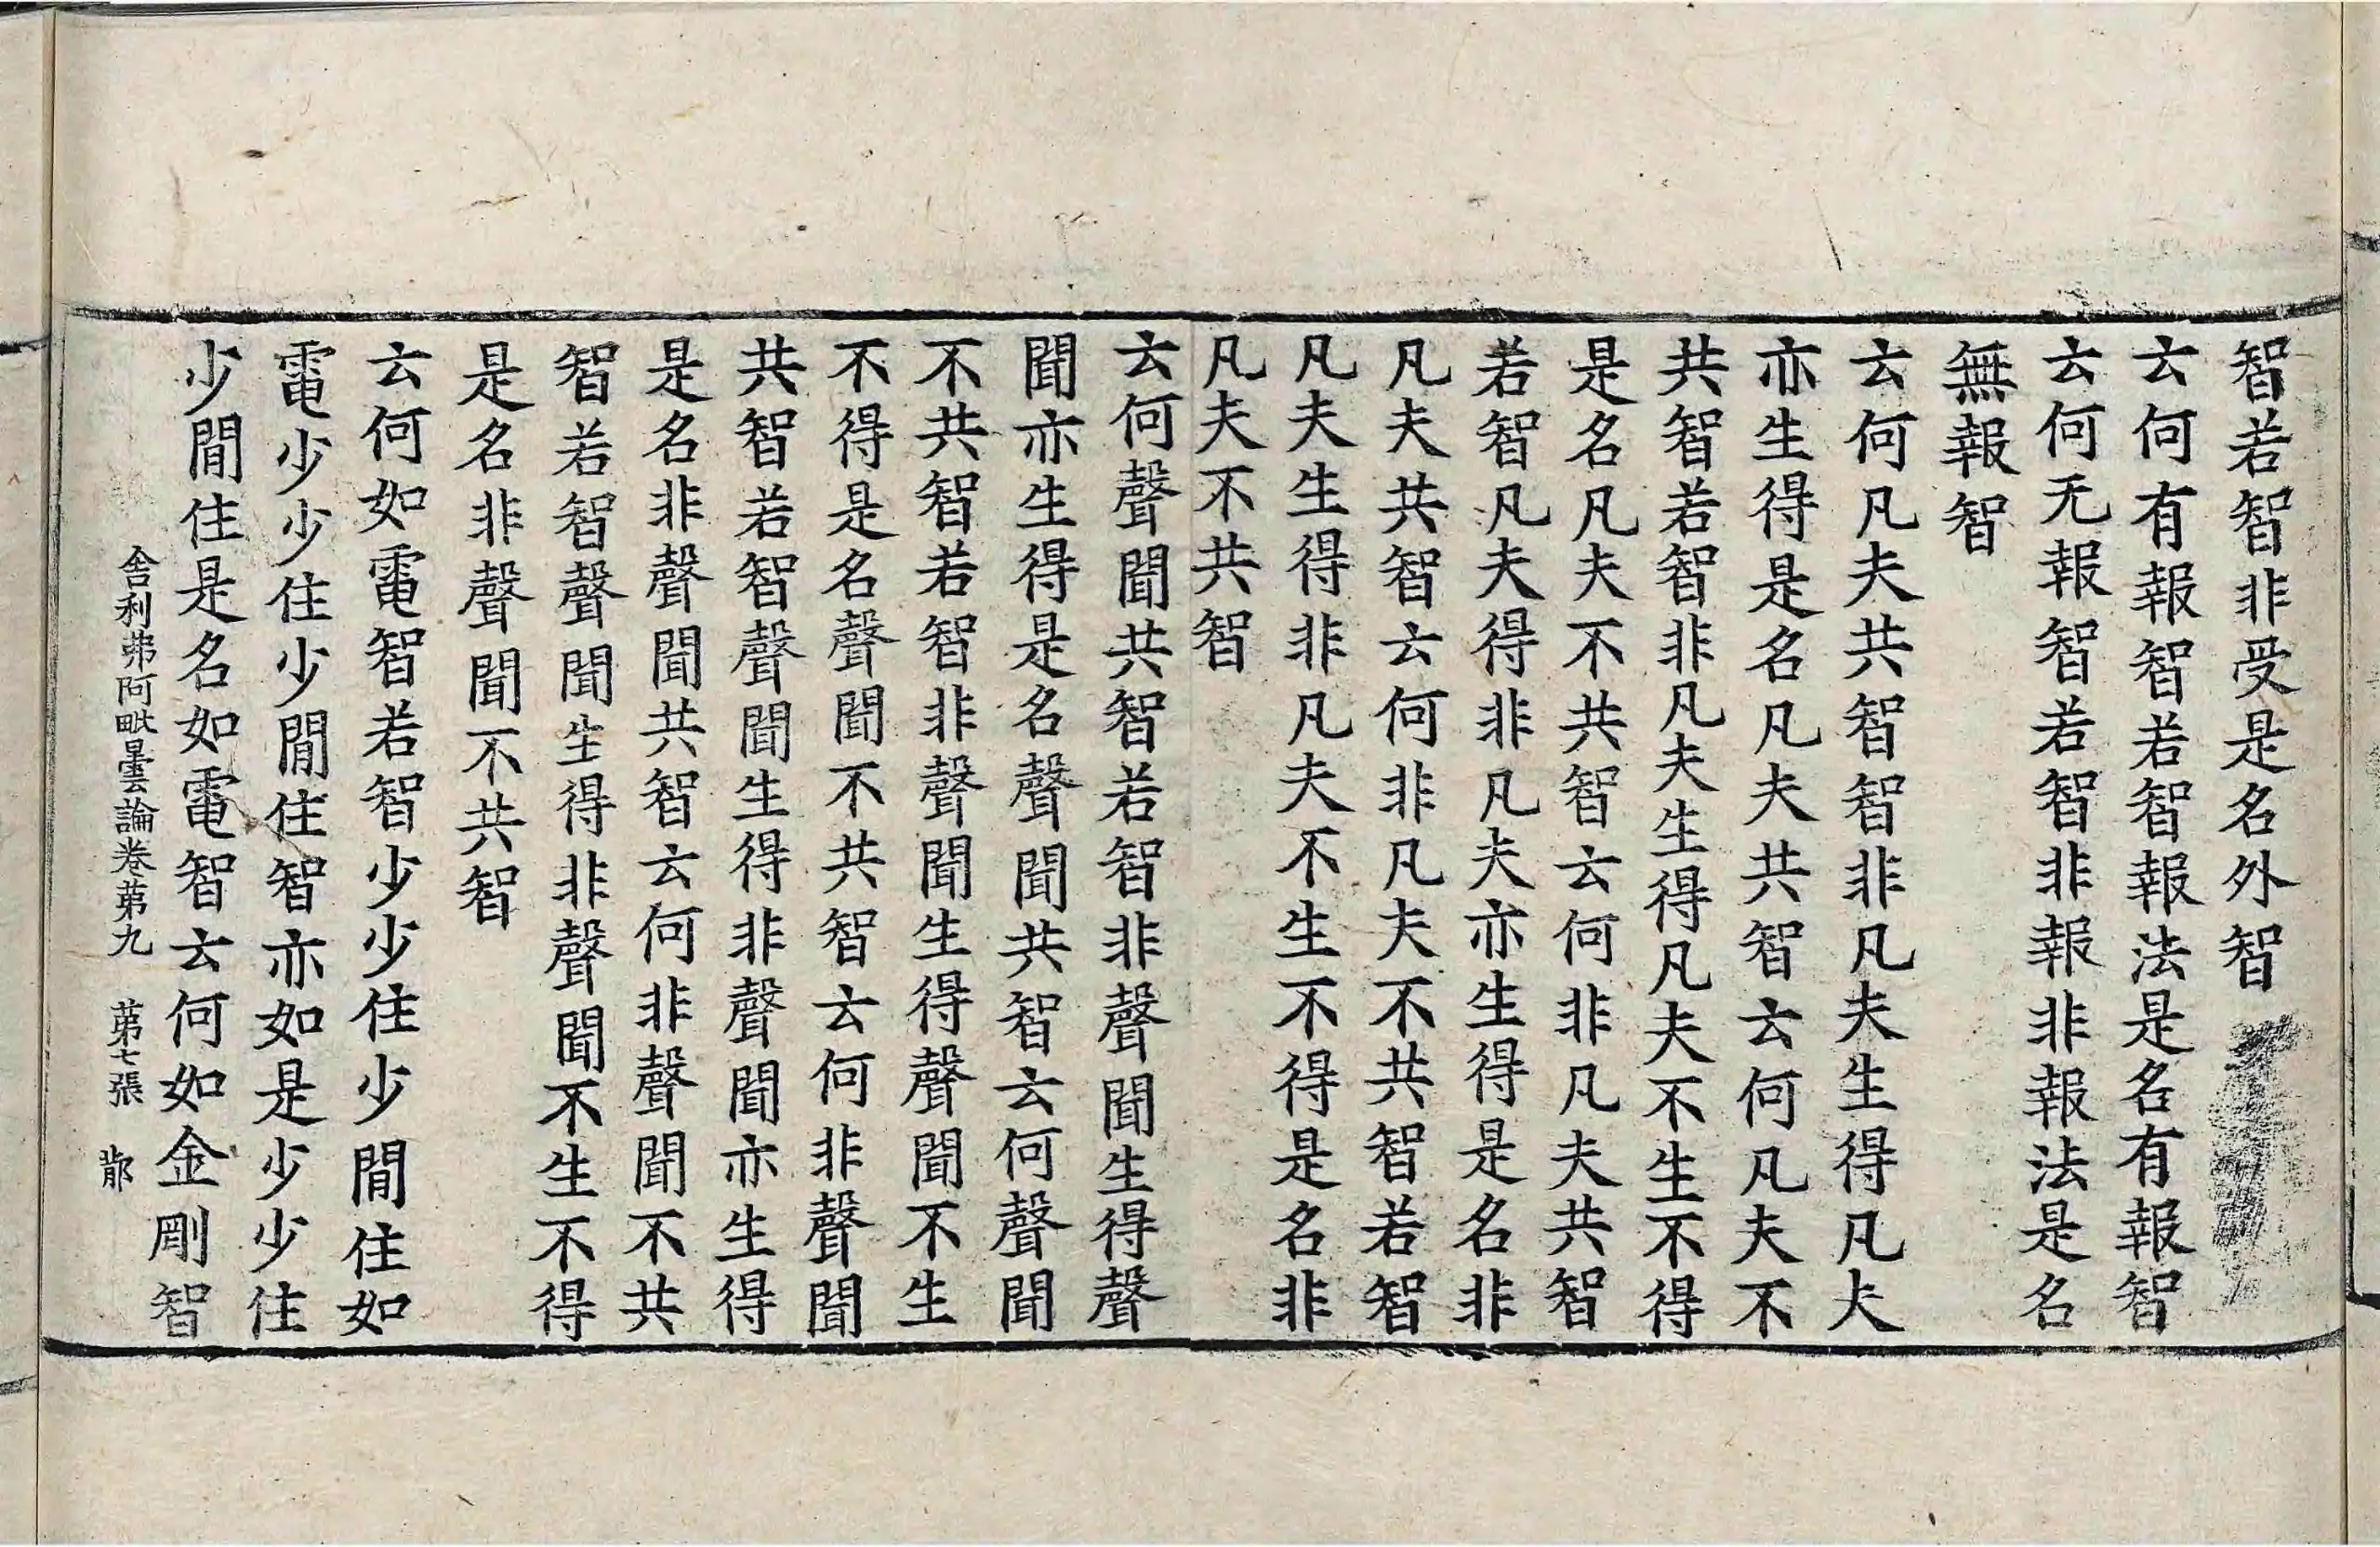 智若智非受是名外智
云何有報智若智報法是名有報智
云何无報智若智非報非報法是名
無報智
云何凡夫共智智非凡夫生得凡夫
亦生得是名凡夫共智云何凡夫不
共智若智非凡夫生得凡夫不生不得
是名凡夫不共智云何非凡夫共智
若智凡夫得非凡夫亦生得是名非
凡夫共智云何非凡夫不共智若智
凡夫生得非凡夫不生不得是名非
凡夫不共智
云何聲聞共智若智非聲聞生得聲
聞亦生得是名聲聞共智云何聲聞
不共智若智非聲聞生得聲聞不生
不得是名聲聞不共智云何非聲聞
共智若智聲聞生得非聲聞亦生得
是名非聲聞共智云何非聲聞不共
智若智聲聞生得非聲聞不生不得
是名非聲聞不共智
云何如電智若智少少住少間住如
電少少住少間住智亦如是少少住
少間住是名如電智云何如金剛智
舍利弗阿毗曇論卷第九 第七張